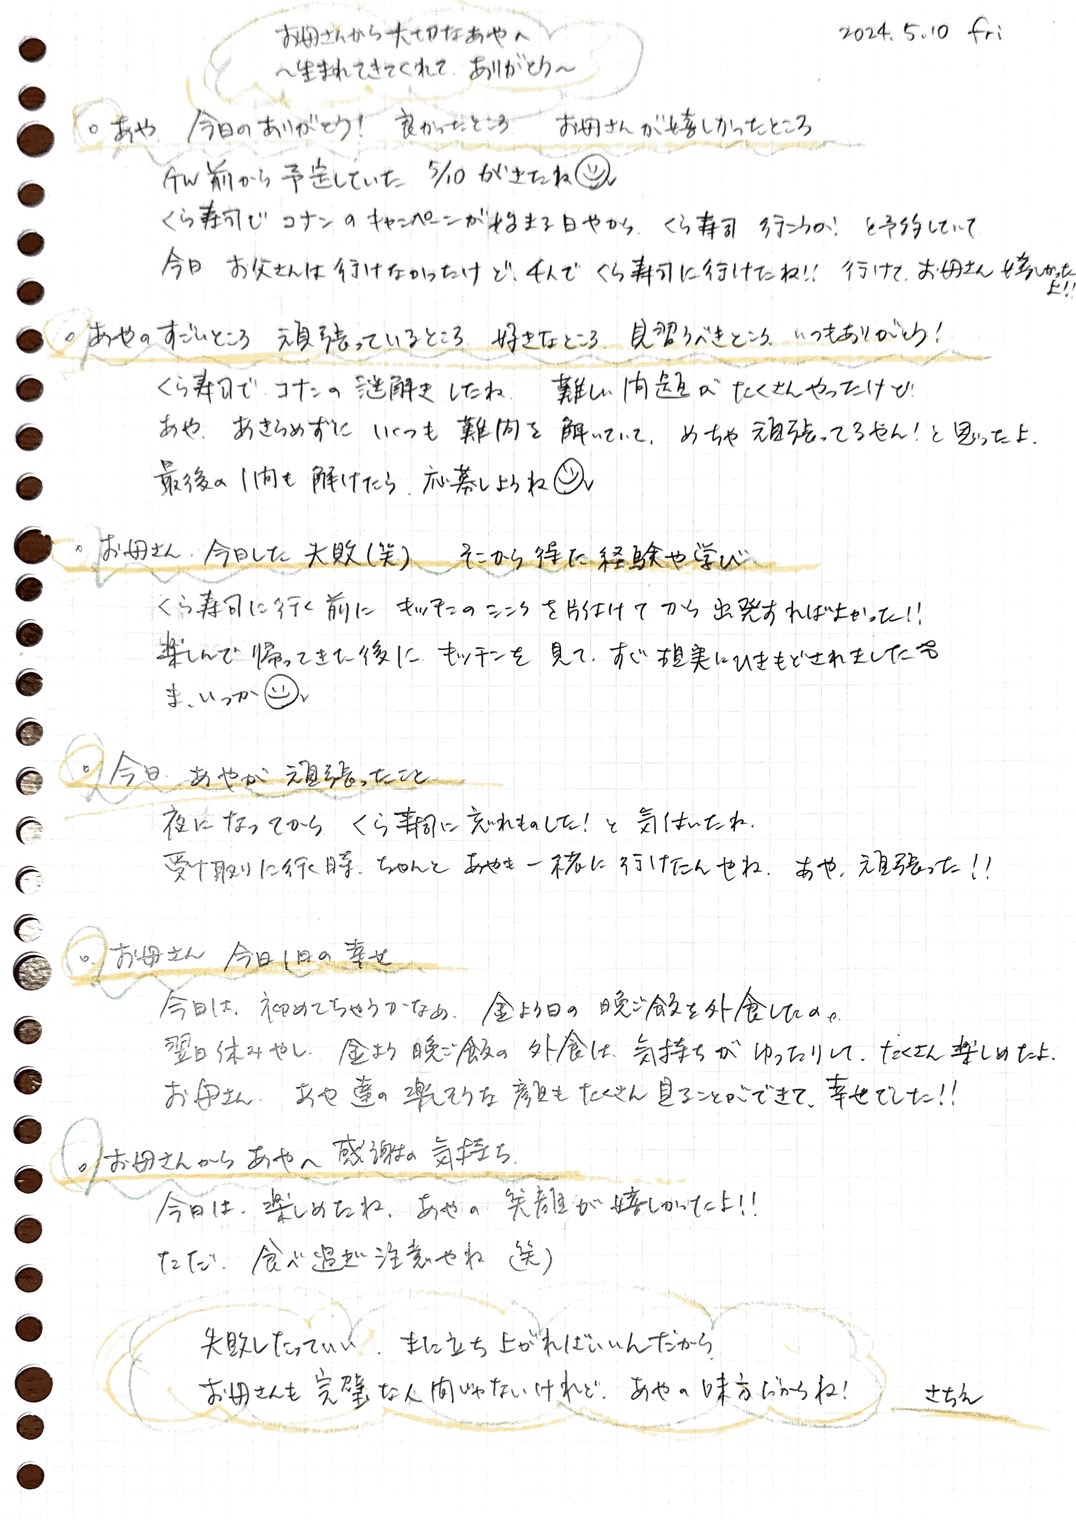 2024.5.10 Fri
お母さんから大切なあやへ
〜生まれてきてくれて、ありがとう〜
○あや、今日のありがとう! 良かったところ お母さんが嬉しかったところ
GW前から予定していた 5/10がきたね
くら寿司でコナンのキャンペーンが始まる日やから、くら寿司 行こうか! と予約していて
今日 お父さんは行けなかったけど、4人でくら寿司に行けたね!! 行けて、お母さん嬉しかったよ!!
○あやのすごいところ 頑張っているところ、好きなところ、見習うべきところ、いつもありがとう!
くら寿司で、コナンの謎解きしたね、難しい問題がたくさんやったけど
あや、あきらめずに いくつも 難問を 解いていて、めちゃ 頑張ってるやん!と思ったよ。
最後の1問も 解けたら、応募しようね
○お母さん、今日した 失敗(笑) そこから得た経験や学び
くら寿司に行く前に キッチンのシンクを片付けてから出発すればよかった!!
楽しんで 帰ってきた後に、キッチンを見て、すぐ現実にひきもどされました
ま、いっか
○今日、あやが 頑張ったこと
夜になってから くら寿司に 忘れものした!と 気付いたね、
受け取りに行く時、ちゃんと あやも 一緒に 行けたんやね、あや、頑張った!!
○お母さん 今日1日の 幸せ
今日は、初めてちゃうかなぁ、金よう日の 晩ご飯を外食したの。
翌日休みやし、金よう 晩ご飯の 外食は、気持ちが ゆったりして、たくさん 楽しめたよ、
お母さん、あや達の 楽しそうな 顔も たくさん 見ることができて、幸せでした!!
○お母さんから あやへ 感謝の 気持ち、
今日は、楽しめたね、あやの 笑顔が 嬉しかったよ!!
ただ、食べ過ぎ 注意やね (笑)
失敗したっていい、また立ち上がればいいんだから、
お母さんも 完璧な人間じゃないけれど、あやの味方だからね!
さちえ